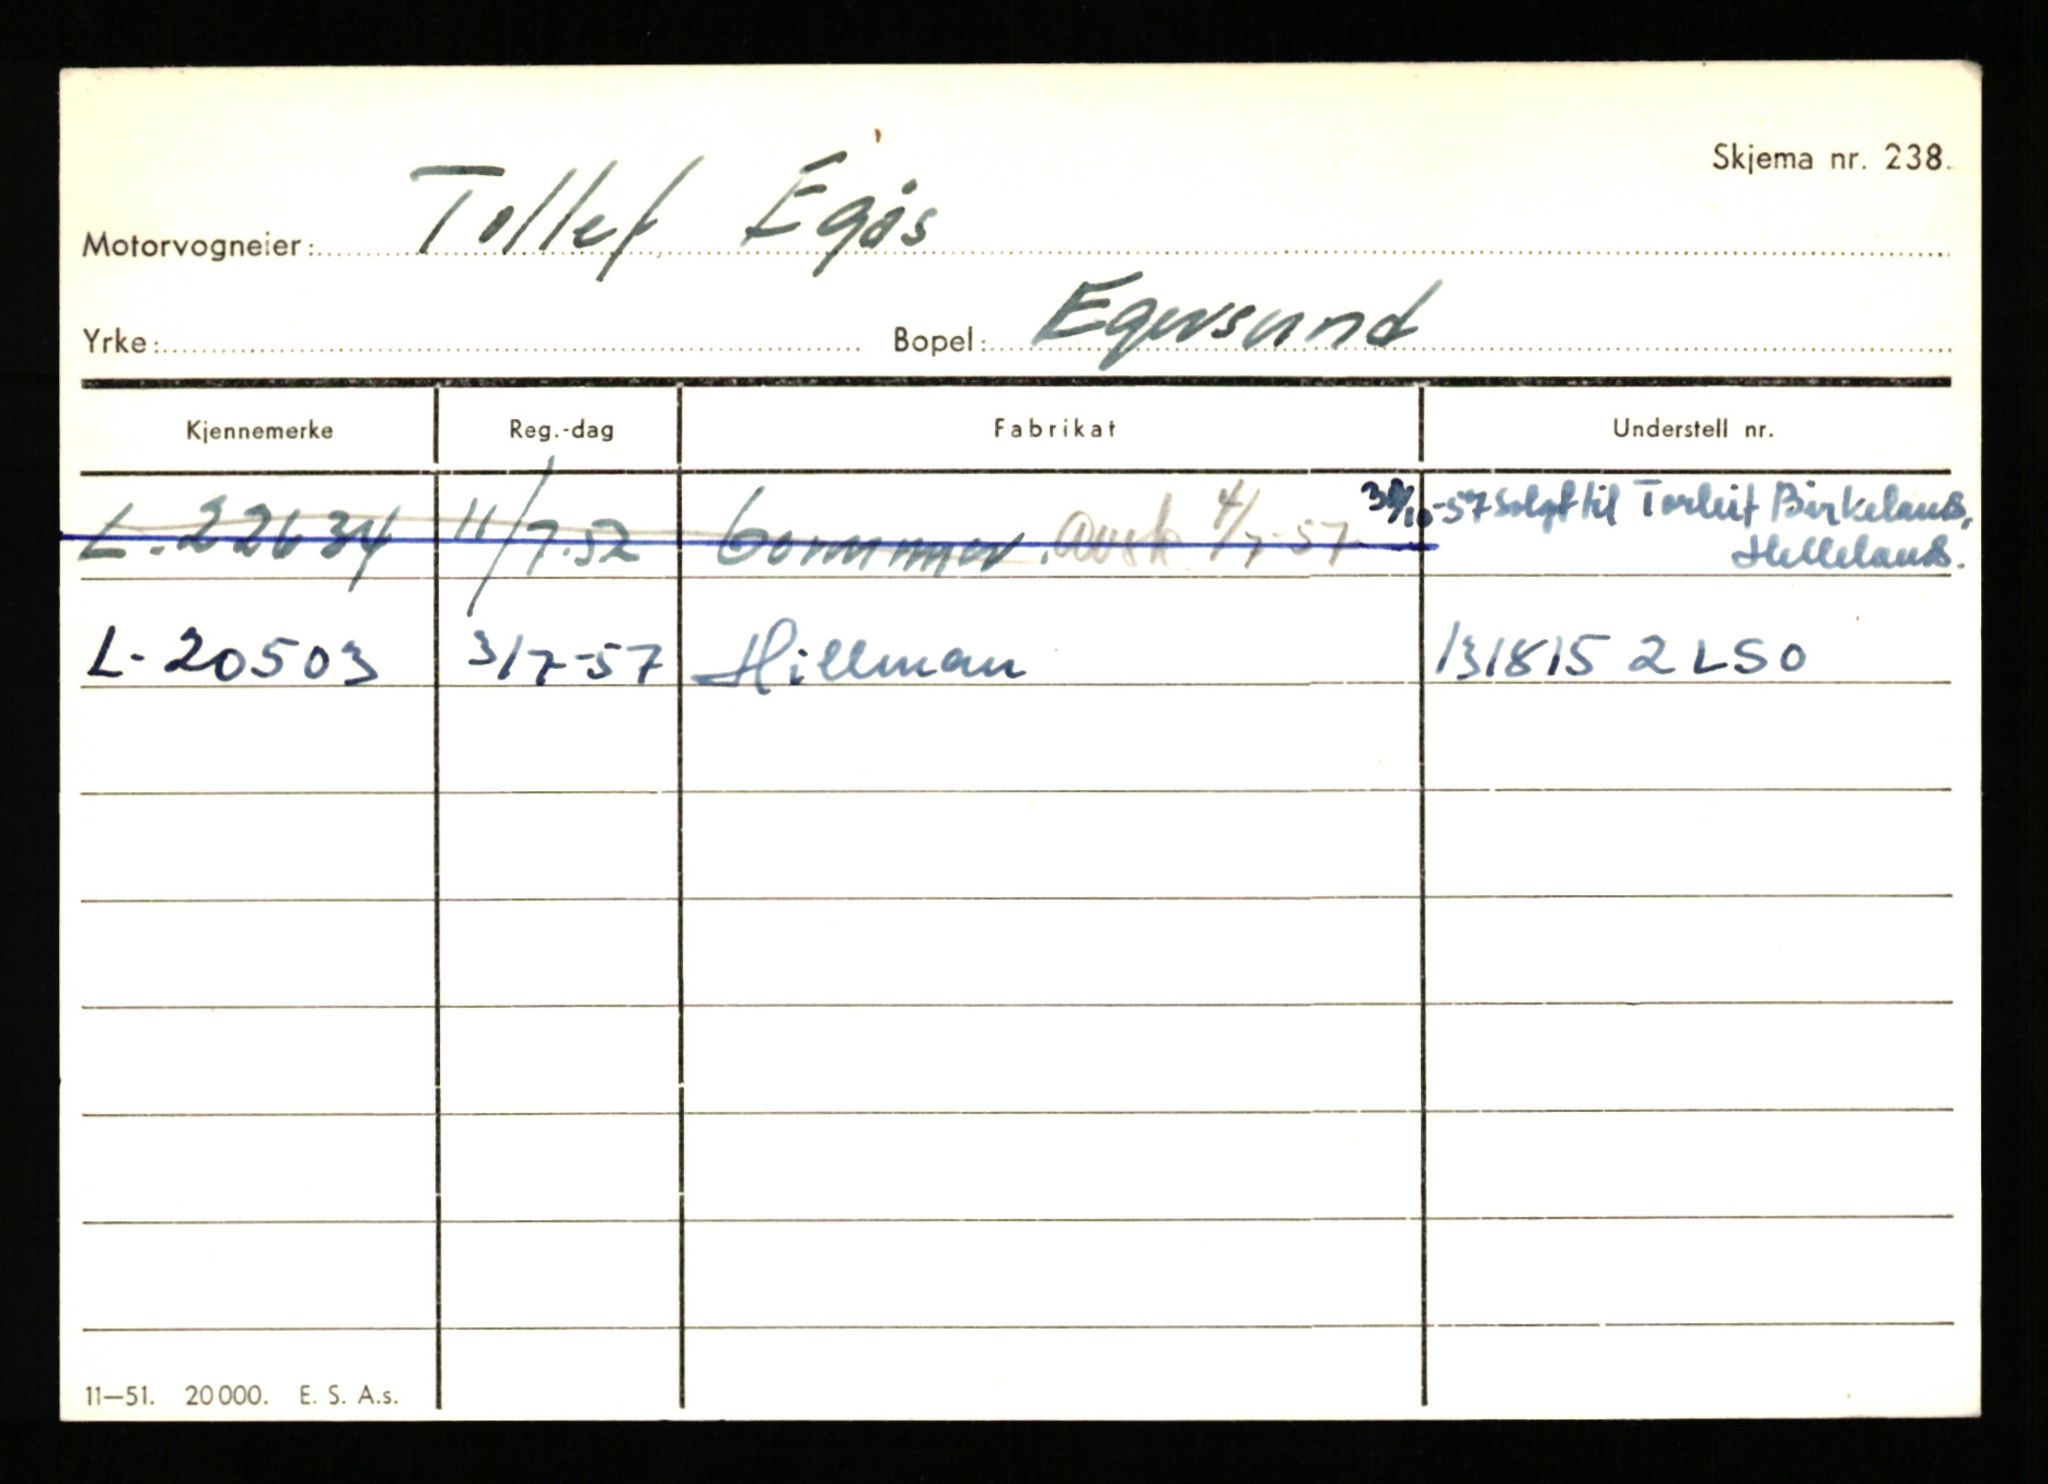 Skjema nr. 238.
Motorvogneier: Tollef Egås
Yrke: Bopel: Egersund
Kjennemerke Reg.-dag Fabrikat Understell nr.
L-22634 11/7.52 Commer. Avsk. 4/7-57 /10-57 Solgt til Torleif Birkeland,
Helleland.
L-20503 3/7-57 Hillman 131815 2 LSO
11—51. 20000. E. S. A.s.